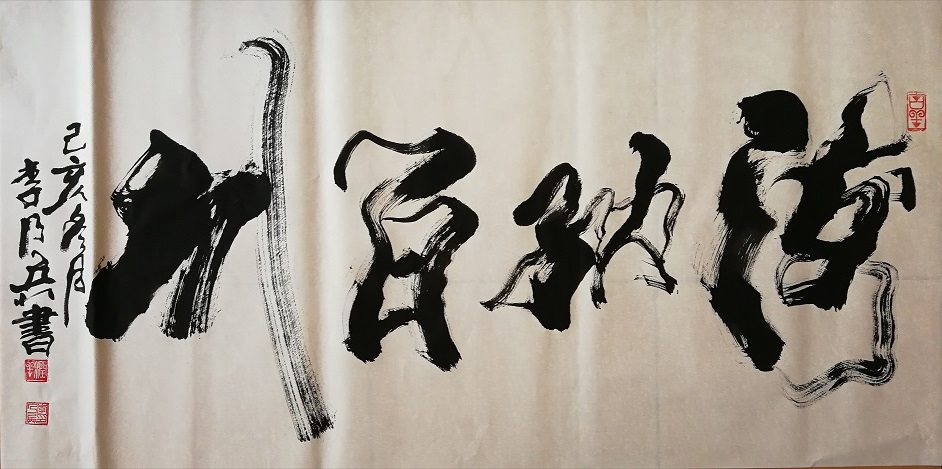 海纳百川
己亥冬月
李乃兵書